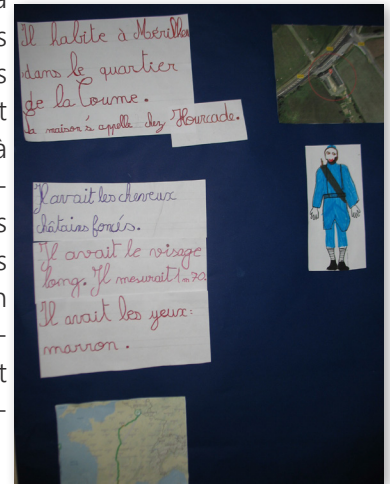 Il habite à Mérilheu
dans le quartier
de la Coume.
La maison s'appelle chez Hourcade.
Il avait les cheveux
châtains foncés.
Il avait le visage
long. Il mesurait 1m70
Il avait les yeux:
marron.